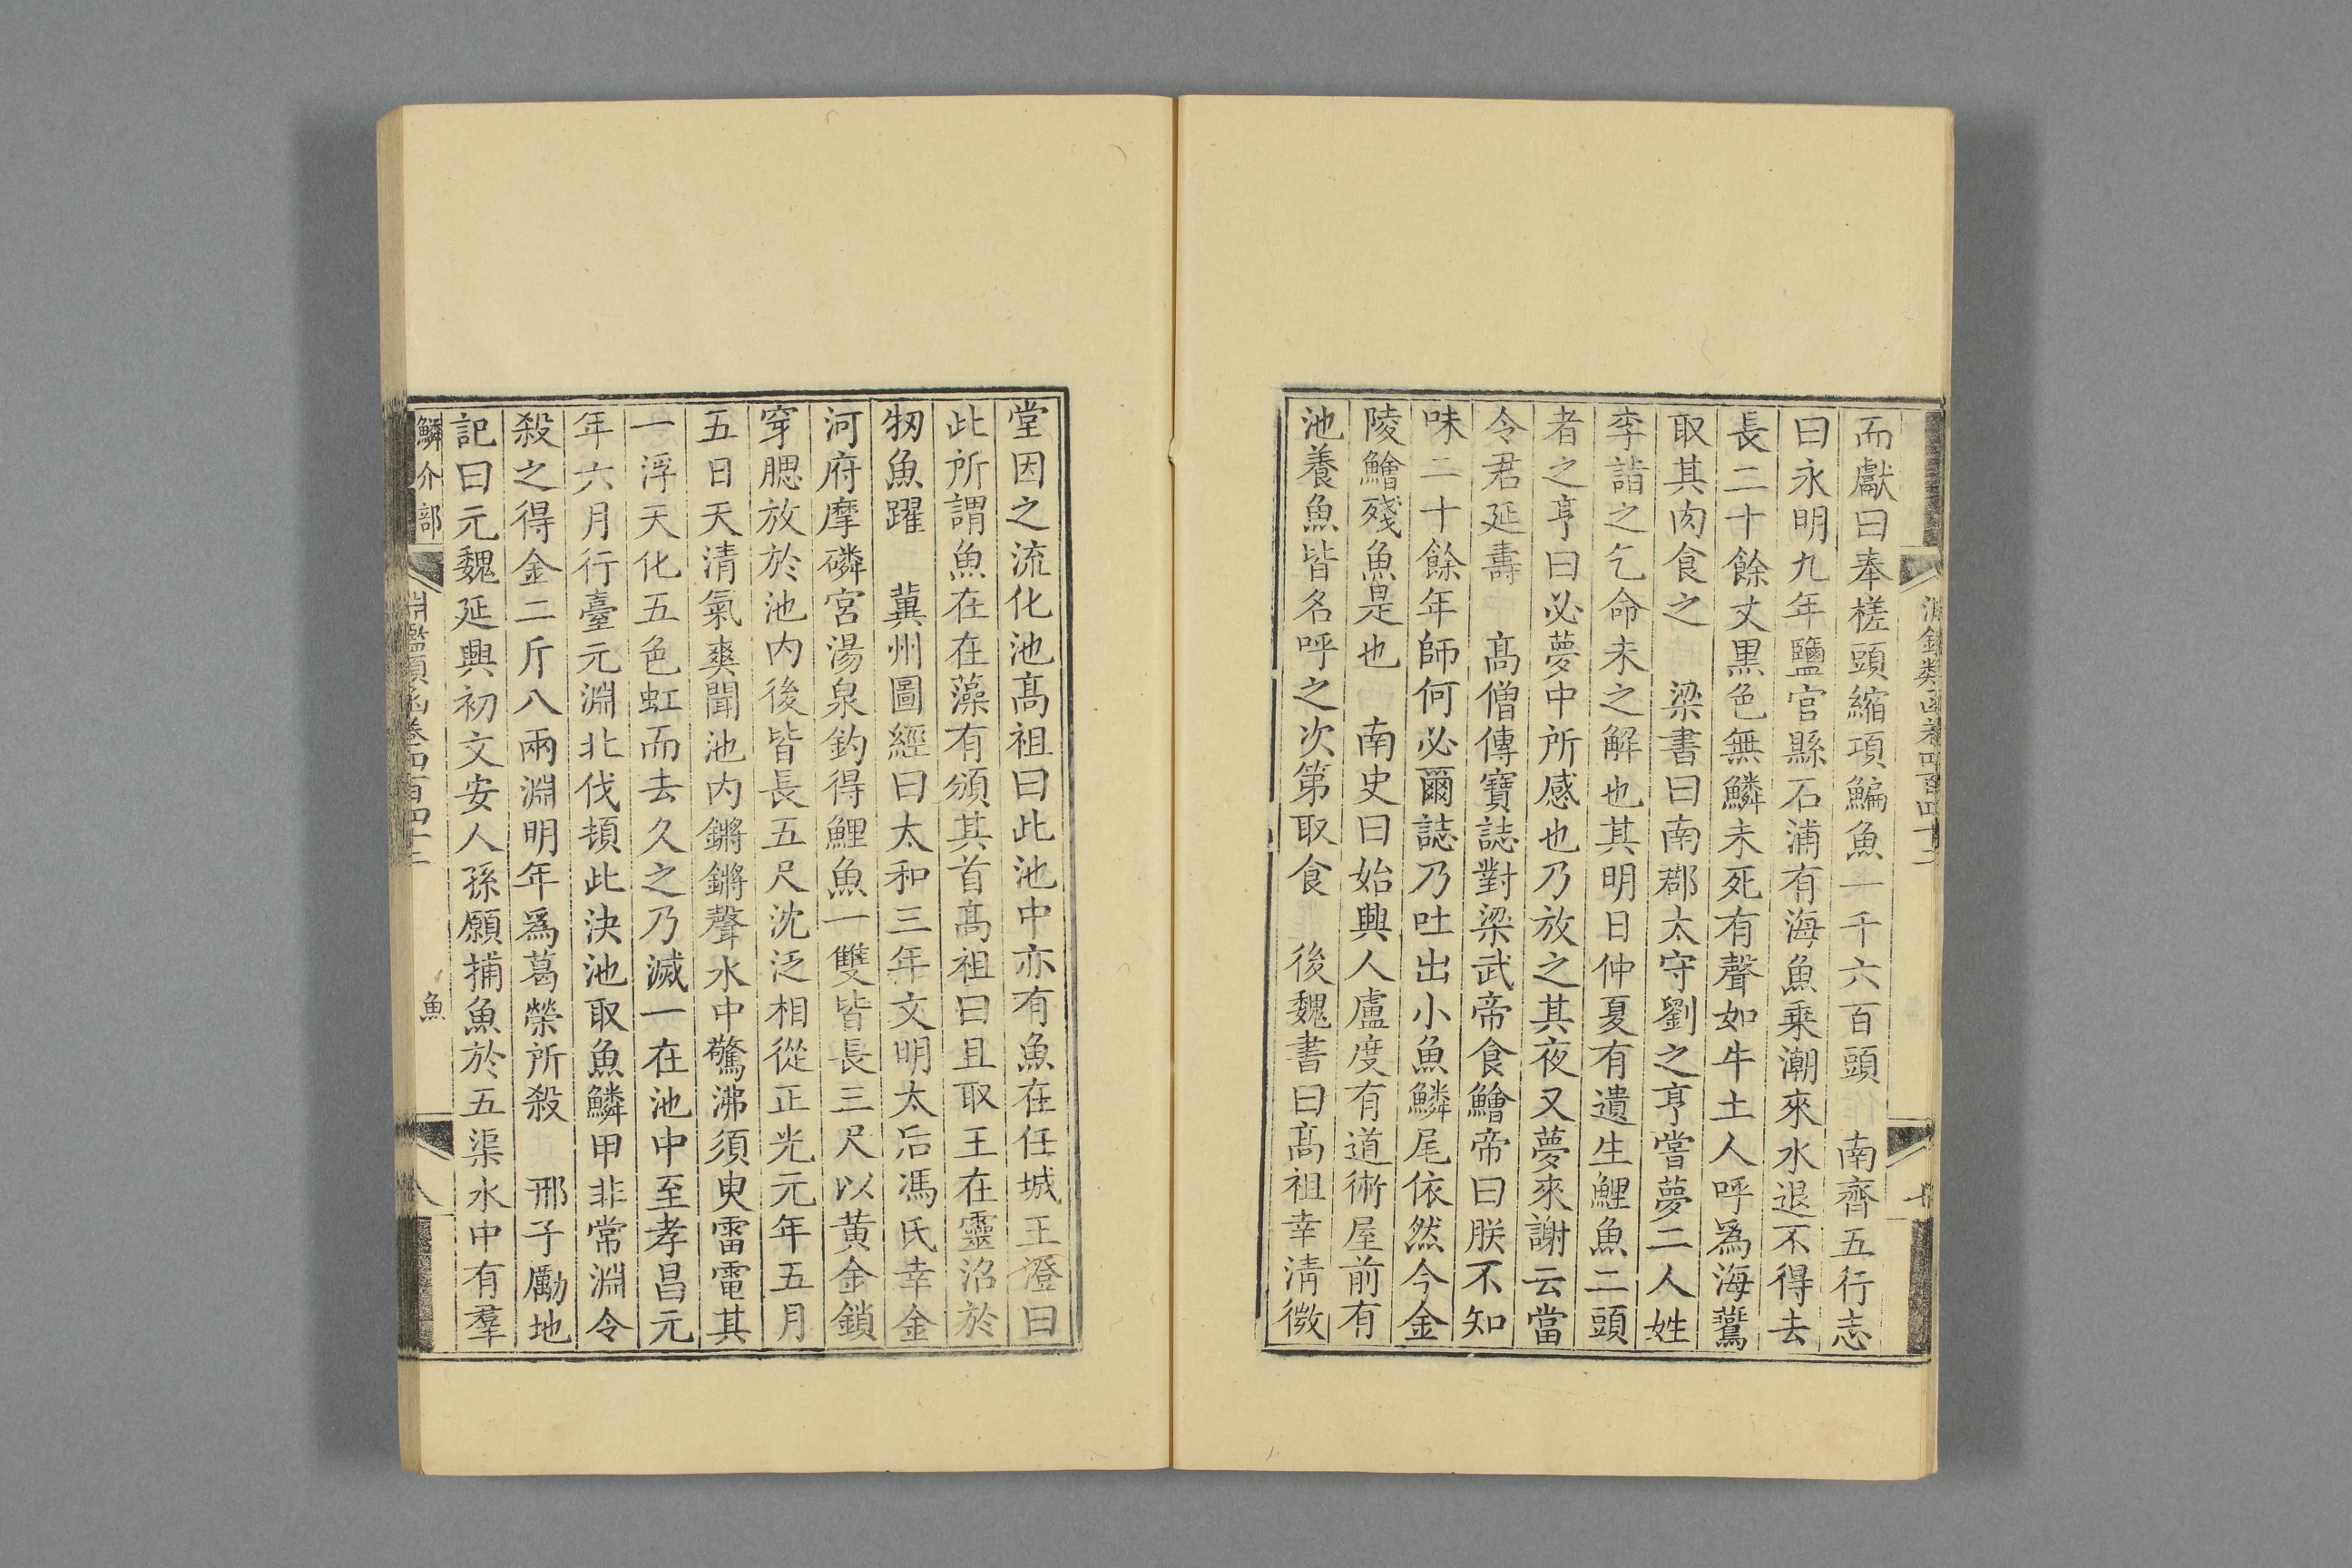 而獻曰奉槎頭縮項鯿魚一千六百頭　南齊五行志
曰永明九年鹽官縣石浦有海魚乗潮來水退不得去
長二十餘丈黒色無鱗未死有聲如牛土人呼爲海鷰
取其肉食之　梁書曰南郡太守劉之亨嘗夢二人姓
李詣之乞命未之解也其明日仲夏有遺生鯉魚二頭
者之亨曰必夢中所感也乃放之其夜又夢來謝云當
令君延壽　髙僧傳寶誌對梁武帝食鱠帝曰朕不知
味二十餘年師何必爾誌乃吐出小魚鱗尾依然今金
陵鱠殘魚是也　南史曰始興人盧度有道術屋前有
池養魚皆名呼之次第取食　後魏書曰髙祖幸清徽
堂因之流化池髙祖曰此池中亦有魚在任城王澄曰
此所謂魚在在藻有頒其首髙祖曰且取王在靈沼於
牣魚躍　冀州圖經曰太和三年文明太后馮氏幸金
河府摩磷宮湯泉釣得鯉魚一雙皆長三尺以黄金鎖
穿腮放於池内後皆長五尺沈泛相從正光元年五月
五日天清氣爽聞池内鏘鏘聲水中驚沸須臾雷電其
一浮天化五色虹而去久之乃滅一在池中至孝昌元
年六月行臺元淵北伐頓此決池取魚鱗甲非常淵令
殺之得金二斤八兩淵明年爲葛榮所殺　邢子勵地
記曰元魏延興初文安人孫願捕魚於五渠水中有羣
鱗介部　淵鑑類函卷四百四十二　魚　八